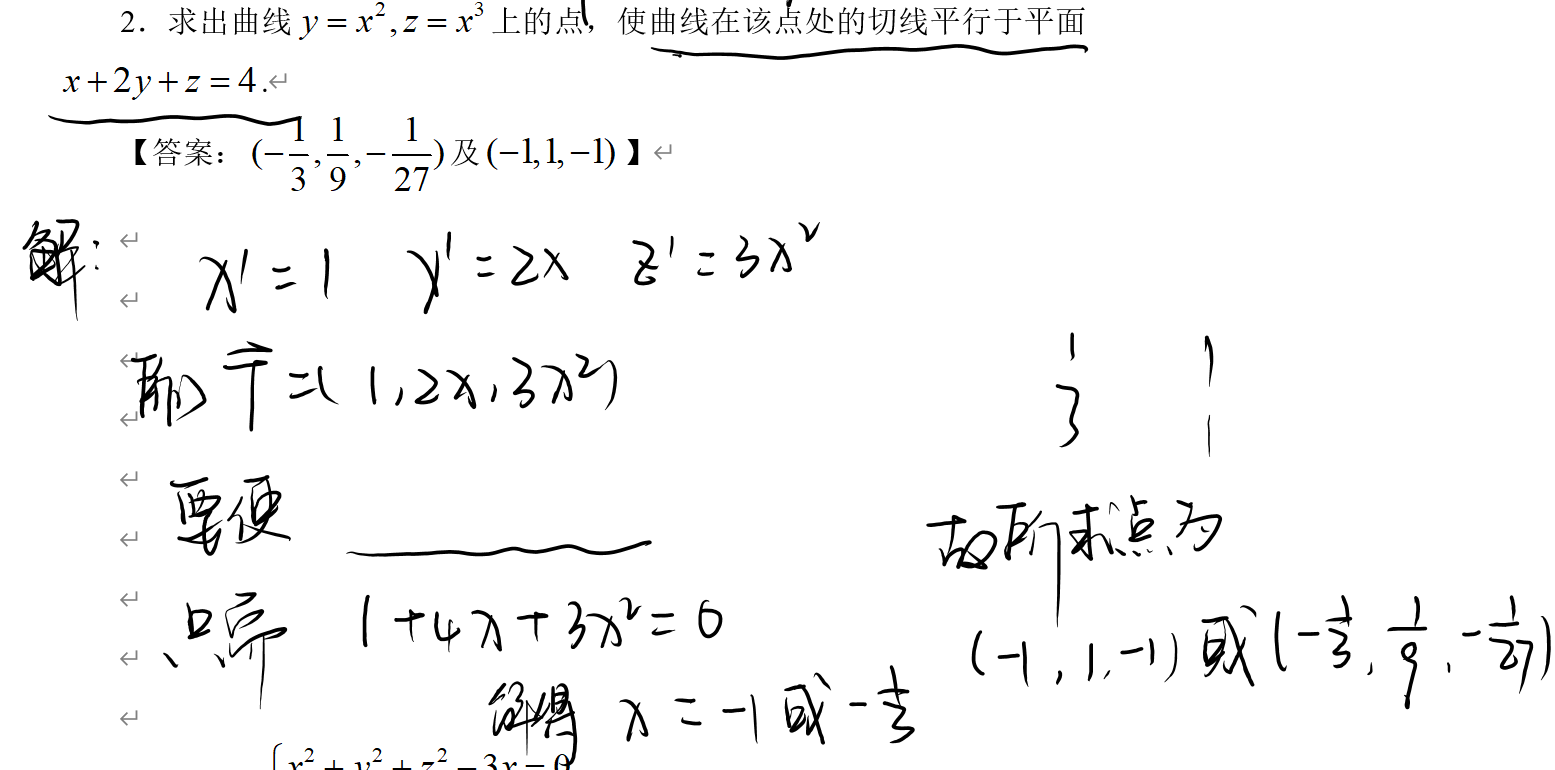 2. 求出曲线 y = x², z = x³ 上的点, 使曲线在该点处的切线平行于平面
x + 2y + z = 4.
【答案: (-1/3, 1/9, -1/27) 及 (-1,1,-1) 】
解: x' = 1 y' = 2x z' = 3x²
那么 T⃗ = (1, 2x, 3x²)
要使
只需 1 + 4x + 3x² = 0
解得 x = -1 或 -1/3
1 1
3 1
故所求点为
(-1, 1, -1) 或 (-1/3, 1/9, -1/27)
x² + y² + z² - 3x = 0